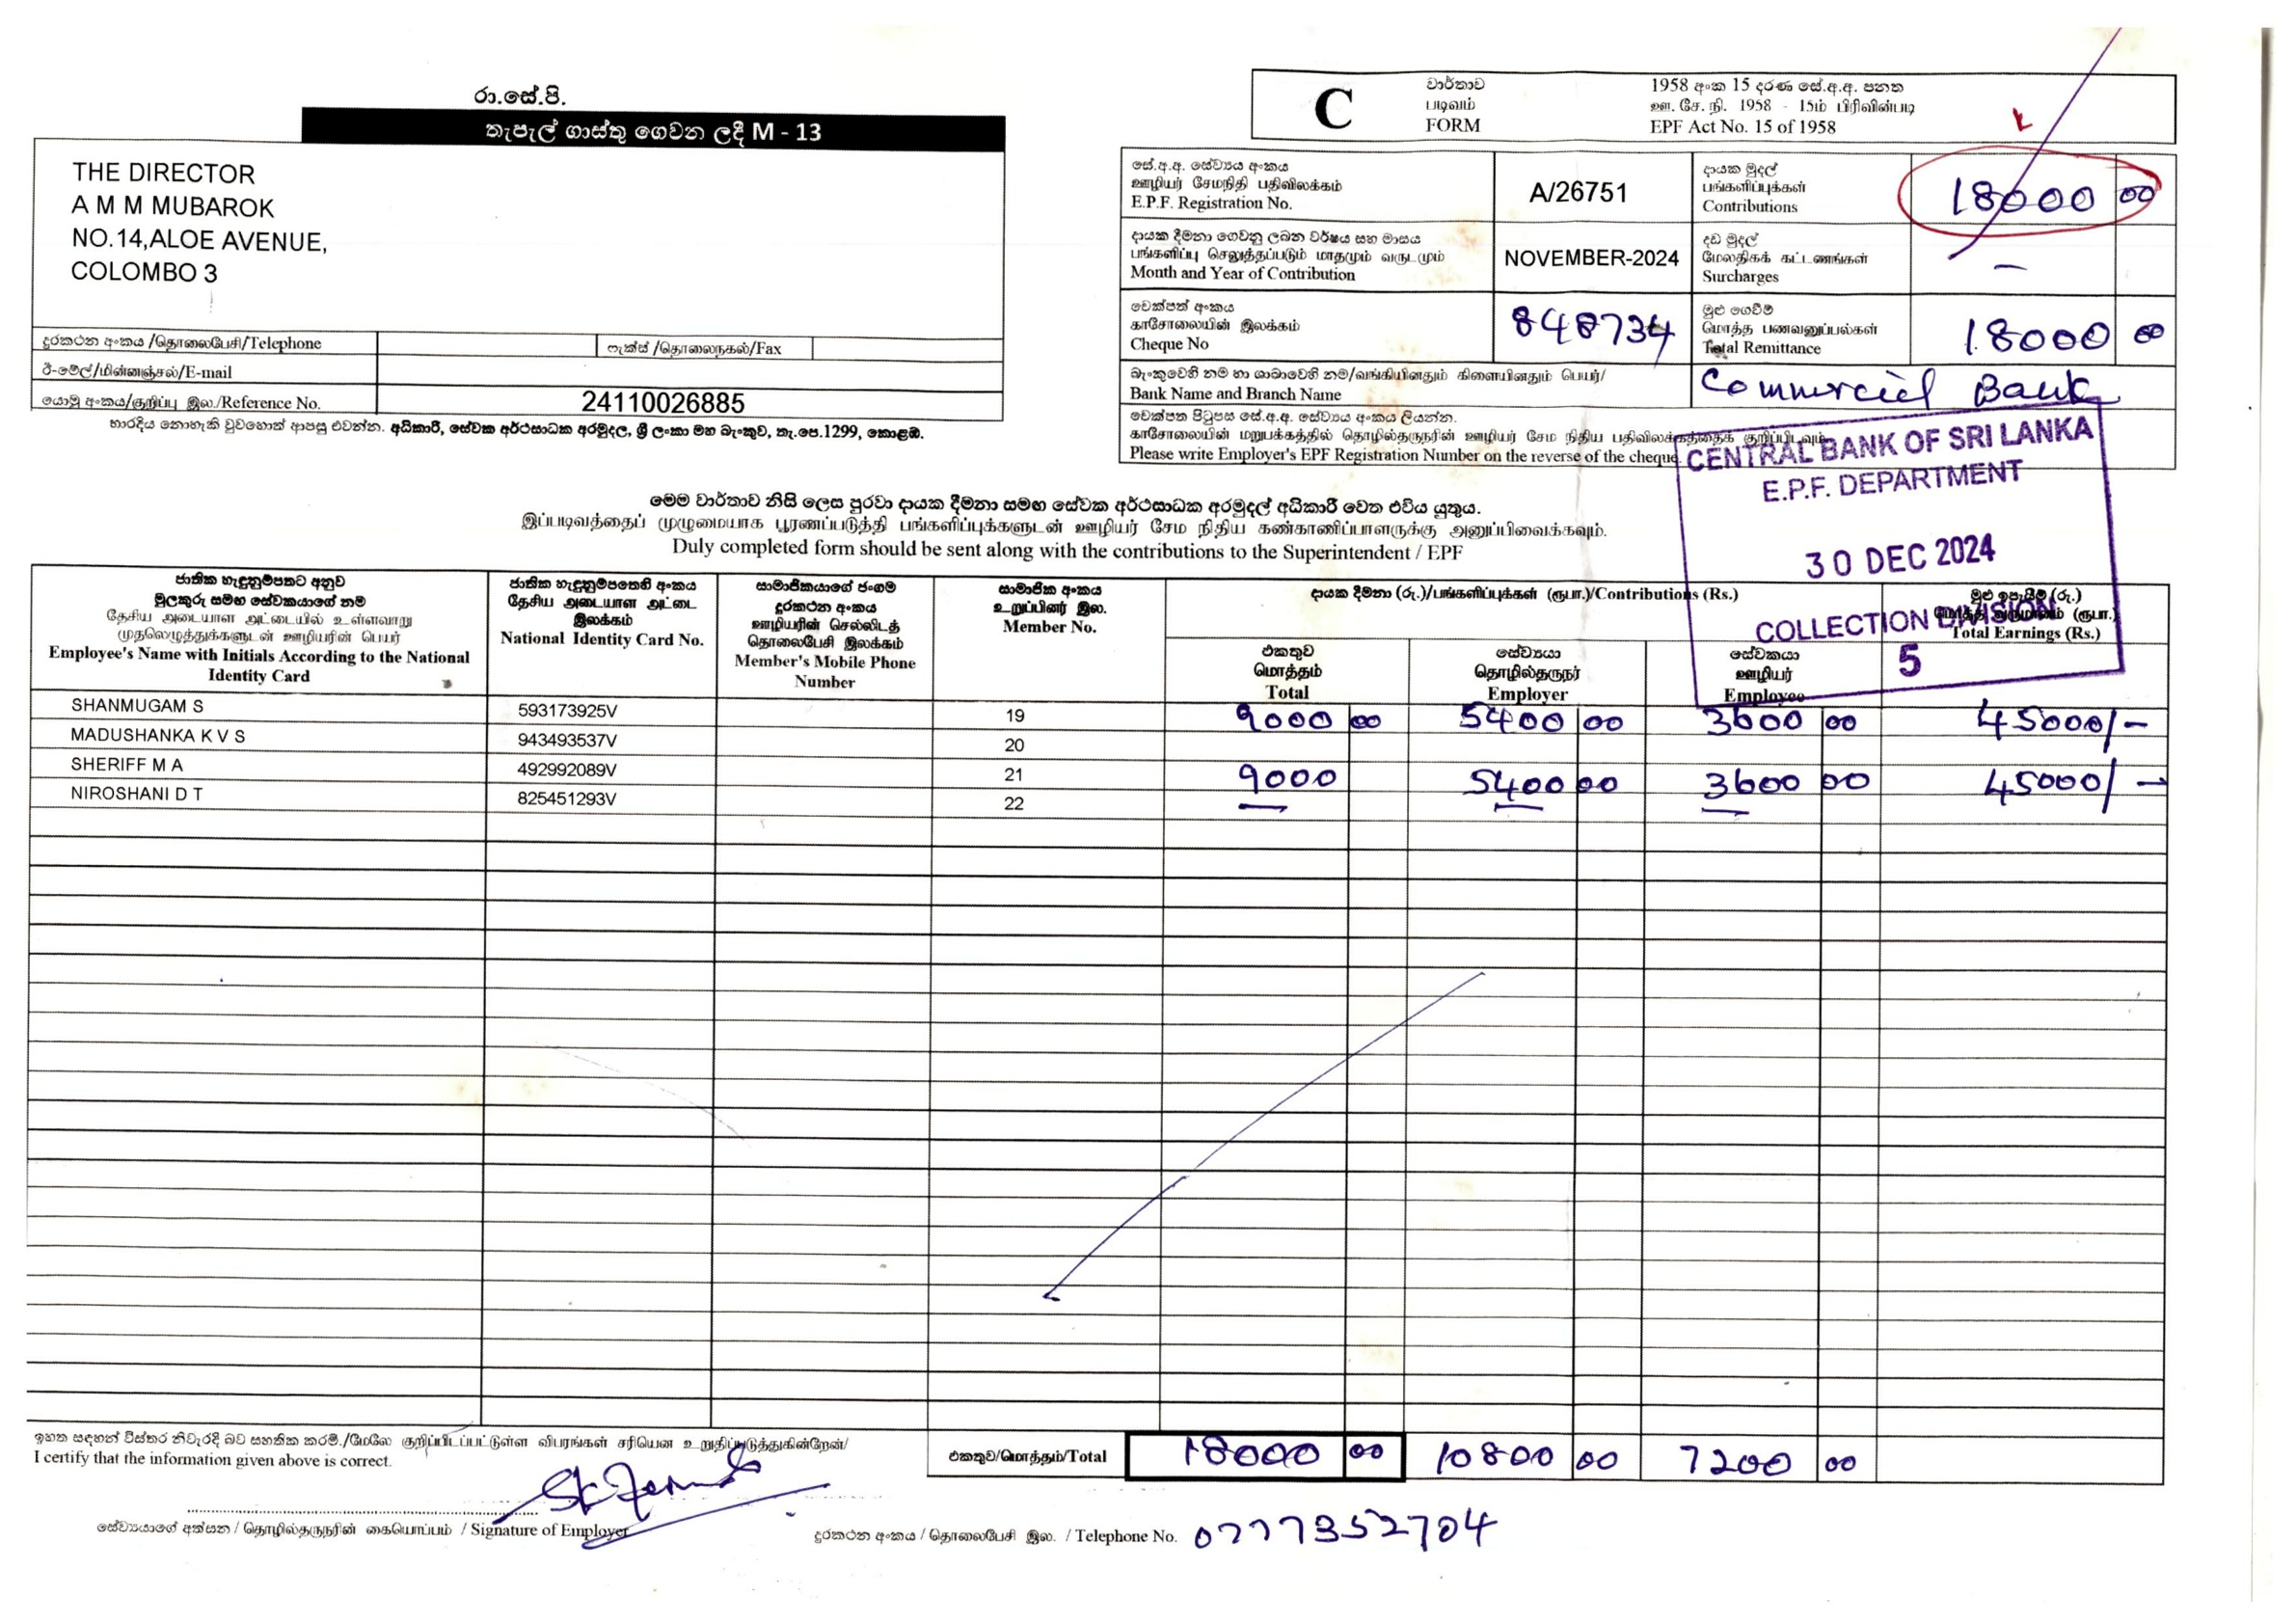 රා.සේ.පි.
තැපැල් ගාස්තු ගෙවන ලදී M - 13
THE DIRECTOR
A M M MUBAROK
NO.14,ALOE AVENUE,
COLOMBO 3
දුරකථන අංකය /தொலைபேசி/Telephone
ෆැක්ස් /தொலைநகல்/Fax
ඊ-මේල්/மின்னஞ்சல்/E-mail
යොමු අංකය/குறிப்பு இல./Reference No. 24110026885
භාරදිය නොහැකි වුවහොත් ආපසු එවන්න. අධිකාරී, සේවක අර්ථසාධක අරමුදල, ශ්‍රී ලංකා මහ බැංකුව, තැ.පෙ.1299, කොළඹ.
C
වාර්තාව
படிவம்
FORM
1958 අංක 15 දරණ සේ.අ.අ. පනත
ஊ. சே. நி. 1958 - 15ம் பிரிவின்படி
EPF Act No. 15 of 1958
සේ.අ.අ. සේව්‍යය අංකය
ஊழியர் சேமநிதி பதிவிலக்கம்
E.P.F. Registration No.
A/26751
දායක මුදල්
பங்களிப்புக்கள்
Contributions
18000 00
දායක දීමනා ගෙවනු ලබන වර්ෂය සහ මාසය
பங்களிப்பு செலுத்தப்படும் மாதமும் வருடமும்
Month and Year of Contribution
NOVEMBER-2024
දඩ මුදල්
மேலதிகக் கட்டணங்கள்
Surcharges
–
චෙක්පත් අංකය
காசோலையின் இலக்கம்
Cheque No
848734
මුළු ගෙවීම්
மொத்த பணவனுப்பல்கள்
Total Remittance
18000 00
බැංකුවෙහි නම හා ශාඛාවෙහි නම/வங்கியினதும் கிளையினதும் பெயர்/
Bank Name and Branch Name
Commercial Bank
චෙක්පත පිටුපස සේ.අ.අ. සේව්‍යය අංකය ලියන්න.
காசோலையின் மறுபக்கத்தில் தொழில்தருநரின் ஊழியர் சேம நிதிய பதிவிலக்கத்தைக் குறிப்பிடவும்
Please write Employer's EPF Registration Number on the reverse of the cheque
CENTRAL BANK OF SRI LANKA
E.P.F. DEPARTMENT
30 DEC 2024
COLLECTION DIVISION
5
මෙම වාර්තාව නිසි ලෙස පුරවා දායක දීමනා සමඟ සේවක අර්ථසාධක අරමුදල් අධිකාරී වෙත එවිය යුතුය.
இப்படிவத்தைப் முழுமையாக பூரணப்படுத்தி பங்களிப்புக்களுடன் ஊழியர் சேம நிதிய கண்காணிப்பாளருக்கு அனுப்பிவைக்கவும்.
Duly completed form should be sent along with the contributions to the Superintendent / EPF
ජාතික හැඳුනුම්පතට අනුව
මුලකුරු සමඟ සේවකයාගේ නම
தேசிய அடையாள அட்டையில் உள்ளவாறு
முதலெழுத்துக்களுடன் ஊழியரின் பெயர்
Employee's Name with Initials According to the National
Identity Card
ජාතික හැඳුනුම්පතෙහි අංකය
தேசிய அடையாள அட்டை
இலக்கம்
National Identity Card No.
සාමාජිකයාගේ ජංගම
දුරකථන අංකය
ஊழியரின் செல்லிடத்
தொலைபேசி இலக்கம்
Member's Mobile Phone
Number
සාමාජික අංකය
உறுப்பினர் இல.
Member No.
දායක දීමනා (රු.)/பங்களிப்புக்கள் (ரூபா.)/Contributions (Rs.)
එකතුව
மொத்தம்
Total
සේව්‍යයා
தொழில்தருநர்
Employer
සේවකයා
ஊழியர்
Employee
මුළු ඉපැයීම් (රු.)
Total Earnings (Rs.)
SHANMUGAM S 593173925V 19 9000 00 5400 00 3600 00 45000/-
MADUSHANKA K V S 943493537V 20
SHERIFF M A 492992089V 21 9000 5400 00 3600 00 45000/-
NIROSHANI D T 825451293V 22
ඉහත සඳහන් විස්තර නිවැරදි බව සහතික කරමි./மேலே குறிப்பிடப்பட்டுள்ள விபரங்கள் சரியென உறுதிப்படுத்துகின்றேன்/
I certify that the information given above is correct.
එකතුව/மொத்தம்/Total 18000 00 10800 00 7200 00
සේව්‍යයාගේ අත්සන / தொழில்தருநரின் கையொப்பம் / Signature of Employer
දුරකථන අංකය / தொலைபேசி இல. / Telephone No. 0777352704